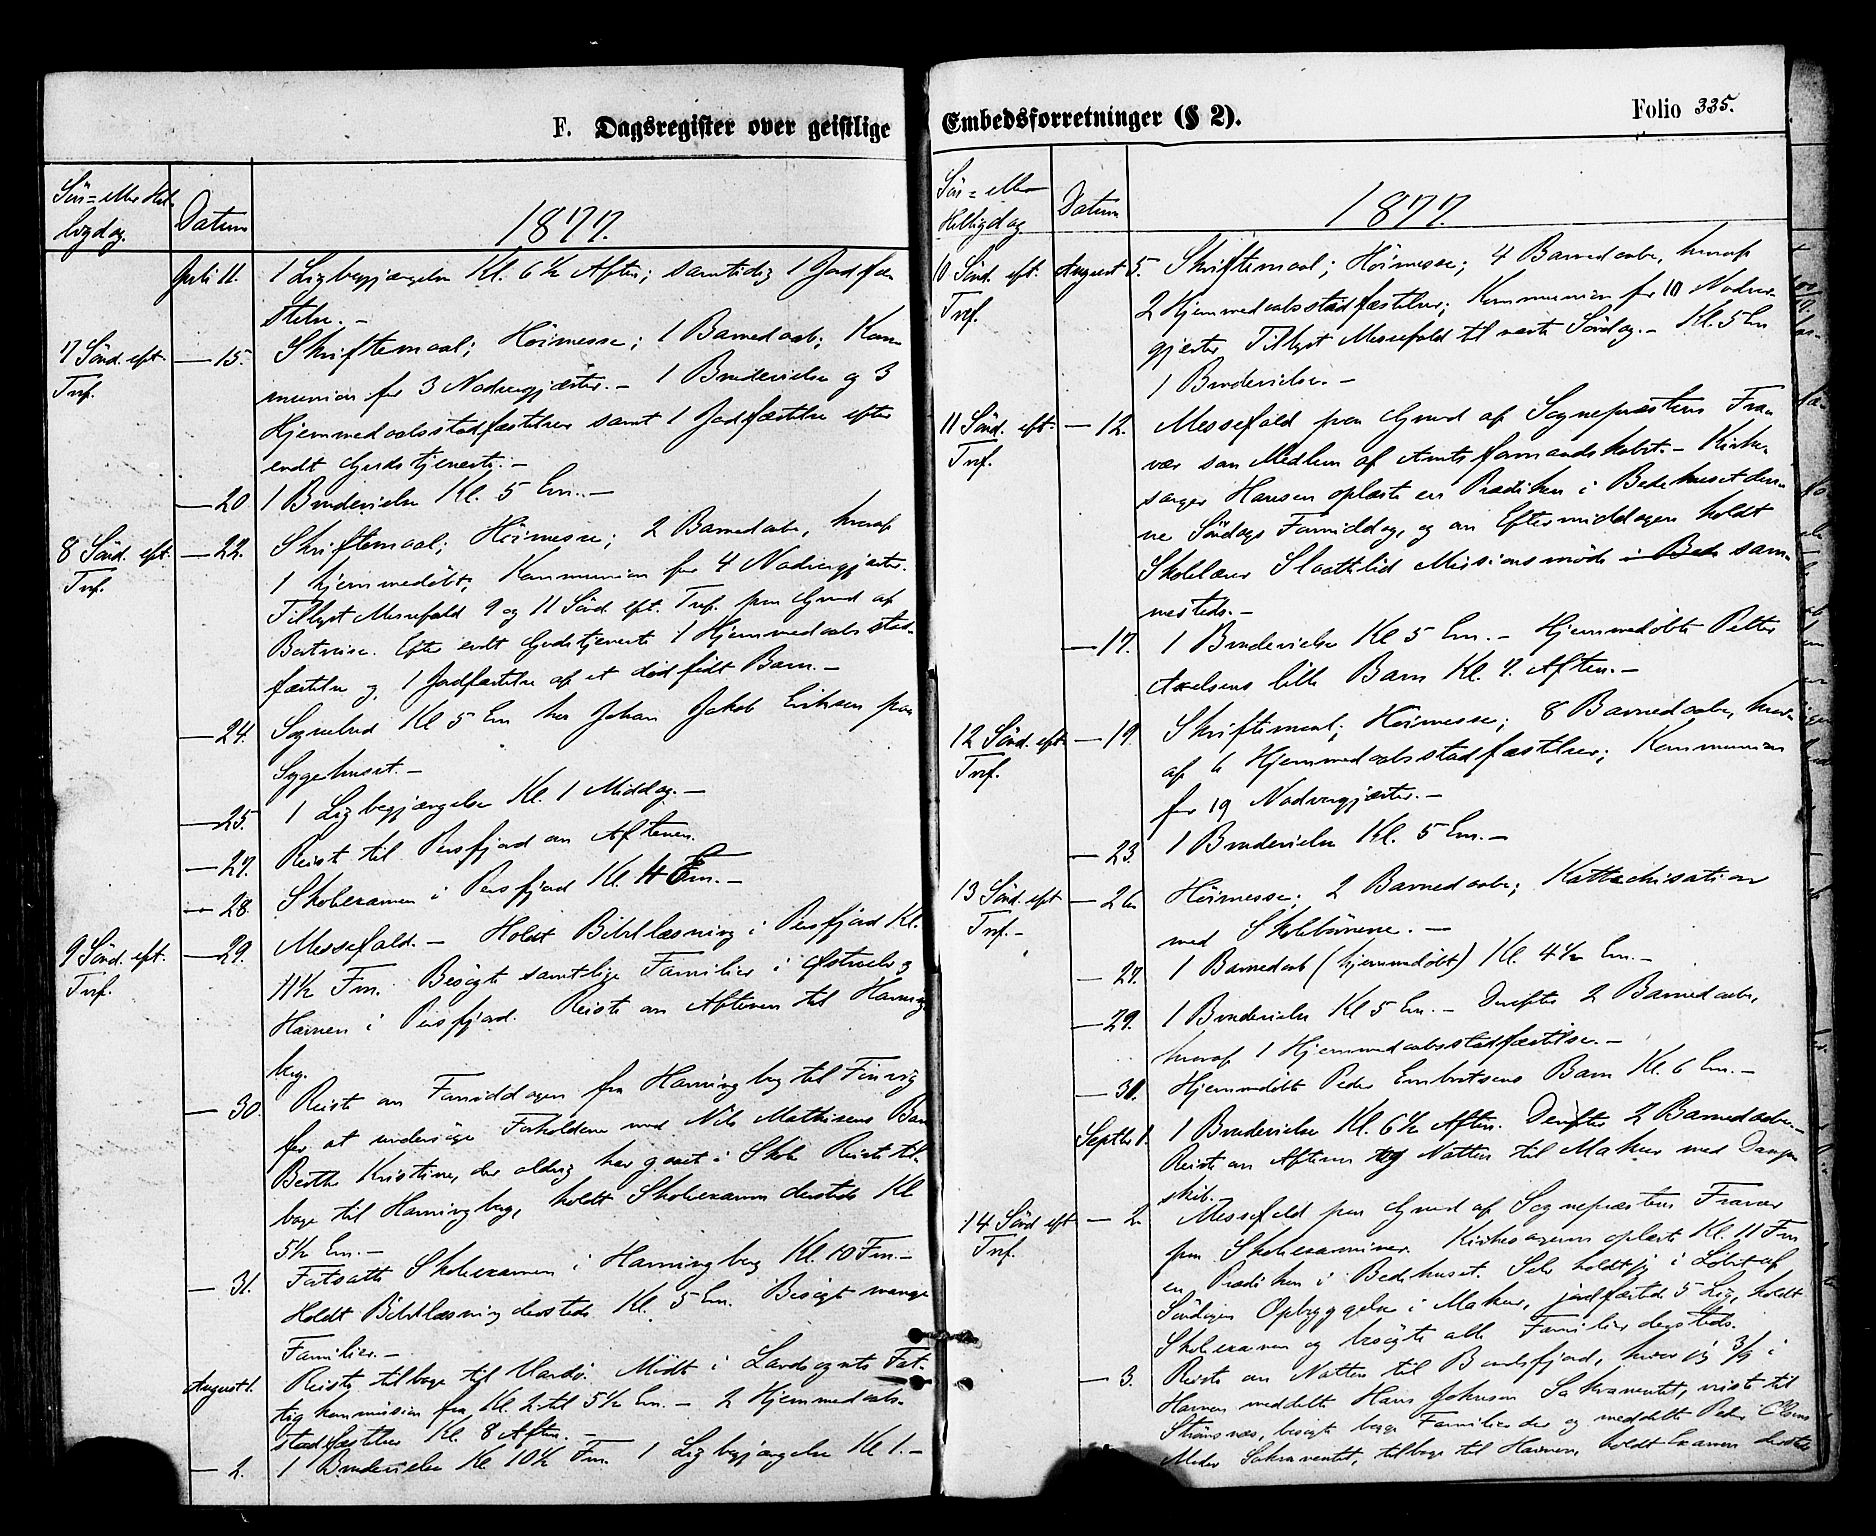 F. Dagsregister over geistlige
Søn= eller Hel-
ligdag.
Datum
1877.
Juli 11. 1 Ligbegjængelse Kl. 6½ Aften; samtidig 1 Jordfæ-
stelse. –
7 Sönd. eft. Tref. — 15. Skriftemaal; Höimesse; 1 Barnedaab; Kom-
munion for 3 Nadvergjæster. – 1 Brudevielse og 3
Hjemmedaabsstadfæstelser samt 1 Jordfæstelse efter
endt Gudstjeneste. –
— 20 1 Brudevielse Kl. 5 Em. –
8 Sönd. eft. Tref. — 22. Skriftemaal; Höimesse; 2 Barnedaabe, hvoraf
1 hjemmedøbt; Kommunion for 4 Nadvergjæster.
Tillyst Messefald 9 og 11 Sönd. eft. Tref. paa Grund af
Bortreise. Efter endt Gudstjeneste 1 Hjemmedaabsstad-
fæstelse og 1 Jordfæstelse af et dødfödt Barn. –
— 24. Sognebud Kl 5 Em hos Johan Jakob Eriksen paa
Sygehuset. –
— 25. 1 Ligbegjængelse Kl. 1 Middag. –
— 27. Reist til Persfjord om Aftenen.
— 28. Skoleexamen i Persfjord Kl. 4 Em. –
9 Sönd. eft. Tref. — 29. Messefald. – Holdt Bibellæsning i Persfjord Kl.
11½ Fm. Besögt samtlige Familier i og
Havnen i Persfjord. Reiste om Aftenen til Havning-
berg.
— 30. Reiste om Formiddagen fra Havningberg til Finvig
for at undersöge Forholdene med Nils Mathisens Barn
Berthe Kristine, der aldrig har gaaet i Skole. Reiste til-
bage til Havningberg, holdt Skoleexamen dersteds Kl
5½ Em. –
— 31. Fortsatte Skoleexamen i Havningberg Kl. 10 Fm. –
Holdt Bibellæsning dersteds Kl. 5 Em. Besögt mange
Familier. –
August 1. Reiste tilbage til Vardö. Mödt i Landsognets Fat-
tigkommission fra Kl. 2 til 5½ Em. – 2 Hjemmedaabs-
stadfæstelser Kl. 8 Aften. –
— 2. 1 Brudevielse Kl 10½ Fm. 1 Ligbegjængelse Kl 1. –
Embedsforretninger (§ 2).
Folio 335.
Søn= eller
Helligdag
Datum
1877.
10 Sönd. eft. Tref. August 5. Skriftemaal; Höimesse; 4 Barnedaabe, hvoraf
2 Hjemmedaabsstadfæstelser; Kommunion for 10 Nadver-
gjæster. Tillyst Messefald til næste Söndag. – Kl. 5 Em
1 Brudevielse. –
11 Sönd. eft. Tref. — 12. Messefald paa Grund af Sognepræstens Fra-
vær som Medlem af Amtsformandskabet. – Kirke-
sanger Hansen oplæste en Prædiken i Bedehuset den-
ne Söndags Formiddag, og om Eftermiddagen holdt
Skolelærer Slaattelid Missionsmöde i Bede sam-
mesteds. –
— 17. 1 Brudevielse Kl 5 Em. – Hjemmedøbte Petter
Axelsens lille Barn Kl. 7. Aften. –
12 Sönd. eft. Tref. — 19. Skriftemaal; Höimesse; 8 Barnedaabe, hvor-
af 6 Hjemmedaabsstadfæstelser; Kommunion
for 19 Nadvergjæster. –
— 23. 1 Brudevielse Kl. 5 Em. –
13 Sönd. eft Tref. – — 26 Höimesse; 2 Barnedaabe; Kattechisation
med Skolebörnene. –
— 27. 1 Barnedaab (hjemmedøbt) Kl. 4½ Em. –
— 29. 1 Brudevielse Kl 5 Em. – Derefter 2 Barnedaabe,
hvoraf 1 Hjemmedaabsstadfæstelse. –
— 30. Hjemmedøbt Peder Barn Kl. 6 Em. –
Septbr 1. 1 Brudevielse Kl. 6½ Aften. Derefter 2 Barnedaabe. –
Reiste om Aftenen og Natten til Makur med Damp-
skib.
14 Sönd eft Tref. — 2. Messefald paa Grund af Sognepræstens Fravær
paa Skoleexaminer. Kirkesangeren oplæste Kl. 11 Fm
en Prædiken i Bedehuset. Selv holdt jeg i Löbet af
Söndagen Opbyggelse i Makur, jordfæstede 5 Lig, holdt
Skoleexamen og besögte alle Familier dersteds.
— 3. Reiste om Natten til Baadsfjord, hvor jeg 3/9 i
Havnen meddelte Hans Johnsen Sakramentet, reiste til
Strömsnæs, besögte begge Familier der og meddelte Peder Olsens
Moder Sakramentet, tilbage til Havnen, holdt Examen dersteds